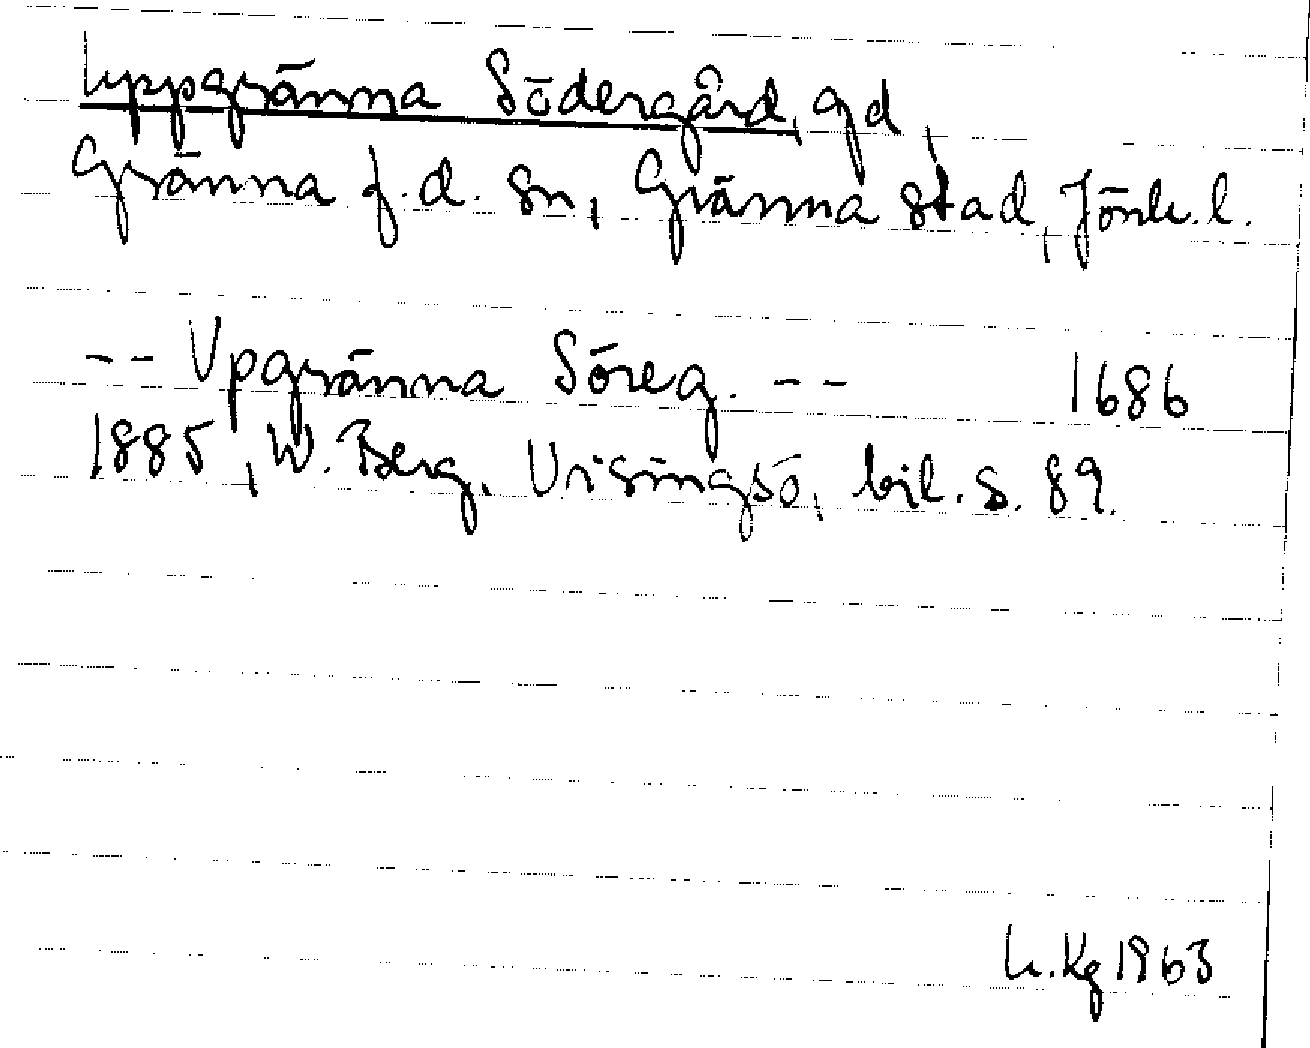 Uppgränna Södergård, gd,
Gränna f.d. sn, Gränna stad, Jönk.l.
-- Upgränna Söreg. -- 1686
1885, W. Berg, Visingsö, bil. s. 89.
L.Kg 1963